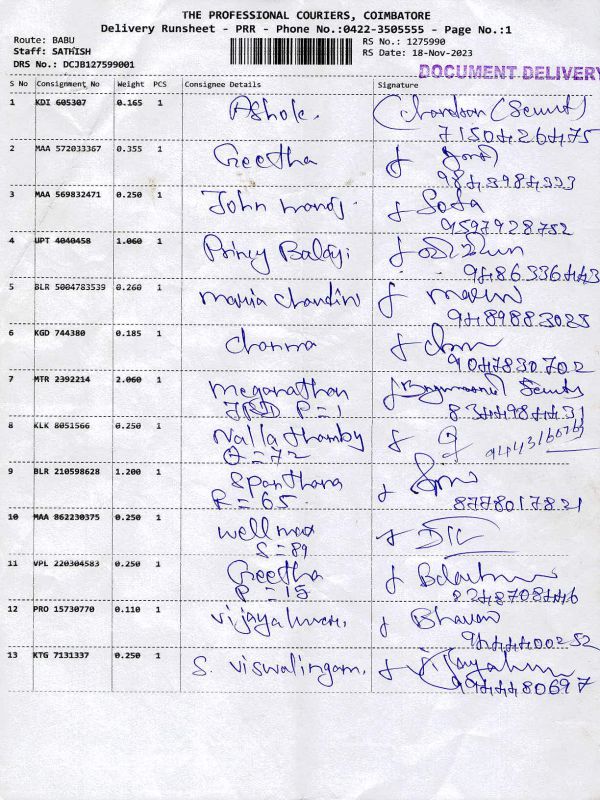 THE PROFESSIONAL COURIERS, COIMBATORE
Delivery Runsheet - PRR - Phone No.:0422-3505555 - Page No.:1
Route: BABU
RS No.: 1275990
Staff: SATHISH
RS Date: 18-Nov-2023
DRS No.: DCJB127599001
DOCUMENT DELIVERY
S No Consignment No Weight PCS Consignee Details Signature
1 KDI 605307 0.165 1 Ashok.
2 MAA 572033367 0.355 1 Geetha
3 MAA 569832471 0.250 1 John
9597928752
4 UPT 4040458 1.060 1 Princy Balaji
9486336443
5 BLR 5004783539 0.260 1 maria
9489883025
6 KGD 744380 0.185 1
9047830702
7 MTR 2392214 2.060 1 meganathan
P = 1
8344984431
8 KLK 8051566 0.250 1 Nallathamby
9 BLR 210598628 1.200 1 Spanthana
R = 65
8778017821
10 MAA 862230375 0.250 1 well max
S = 89
11 VPL 220304583 0.250 1 Geetha
P = 15
8248708446
12 PRO 15730770 0.110 1 Bhavan
9444400252
13 KTG 7131337 0.250 1 S. Viswalingam.
9944480697